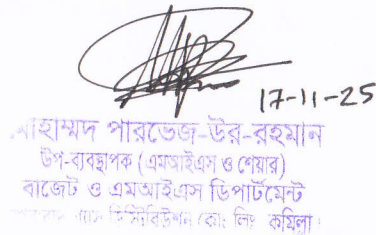 17-11-25
মোহাম্মদ পারভেজ-উর-রহমান
উপ-ব্যবস্থাপক (এমআইএস ও শেয়ার)
বাজেট ও এমআইএস ডিপার্টমেন্ট
গ্যাস ডিস্ট্রিবিউশন কোং লিঃ কুমিল্লা।